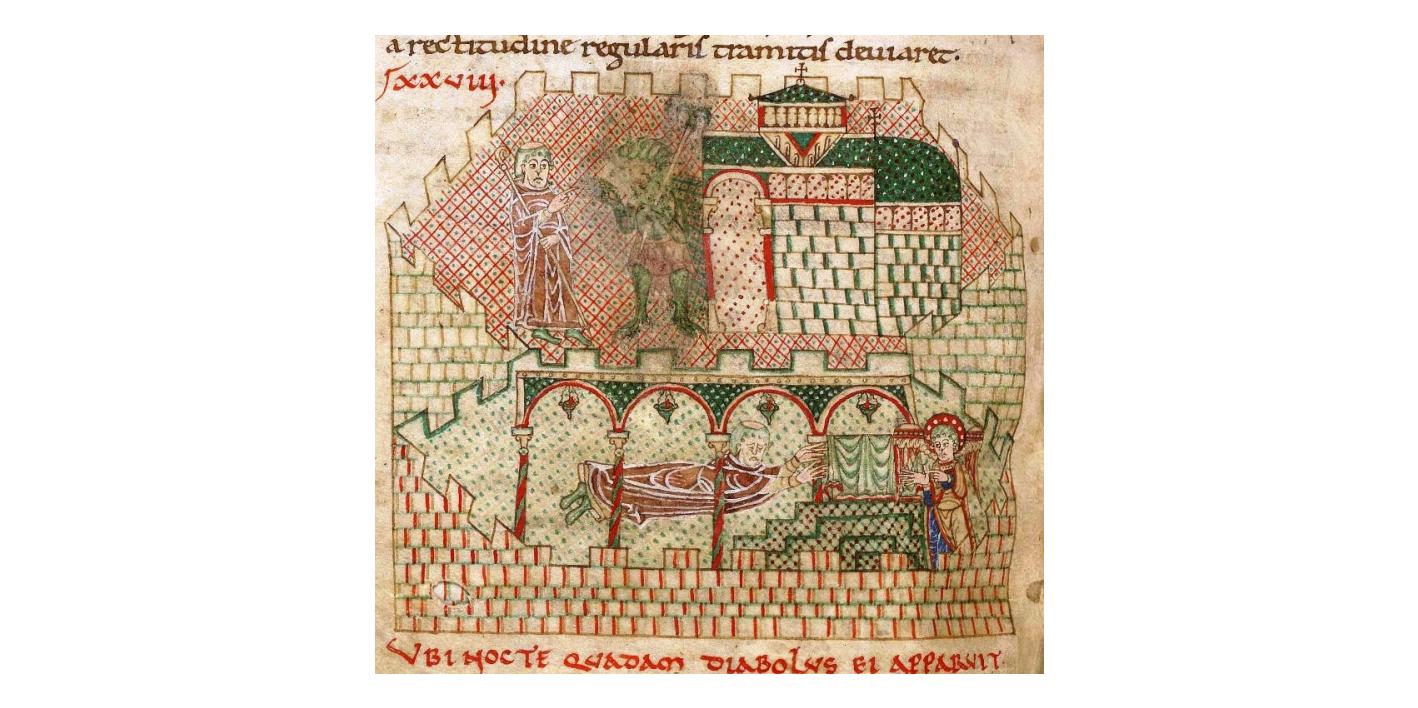 a rectitudine regularis tramitis deuiaret.
XXVIII.
VBI NOCTE QVADAM DIABOLVS EI APPARUIT.